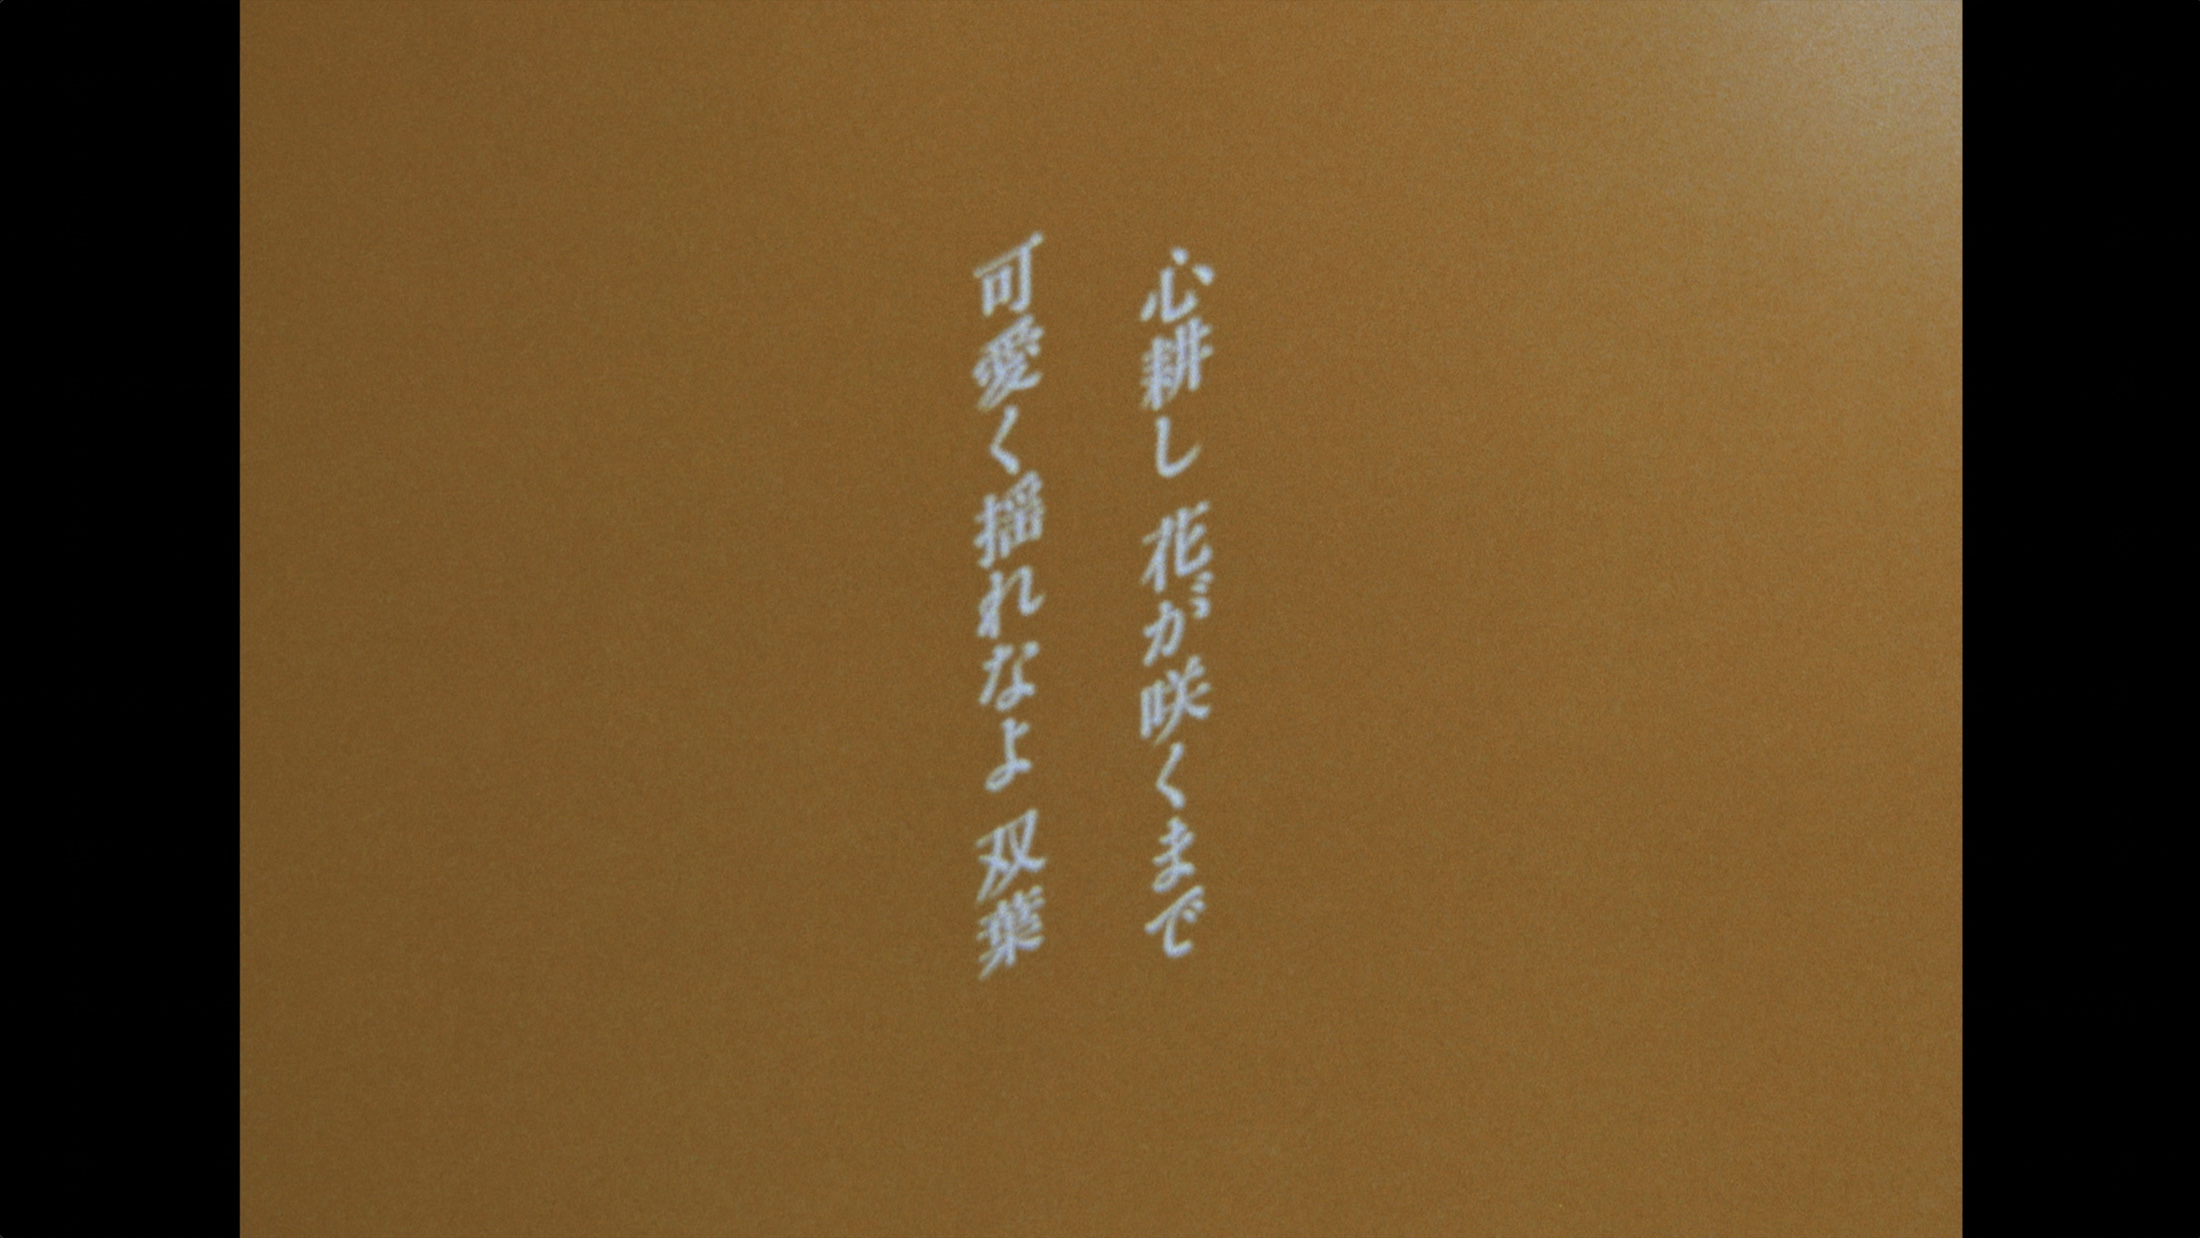 心耕し 花が咲くまで
可愛く揺れなよ 双葉